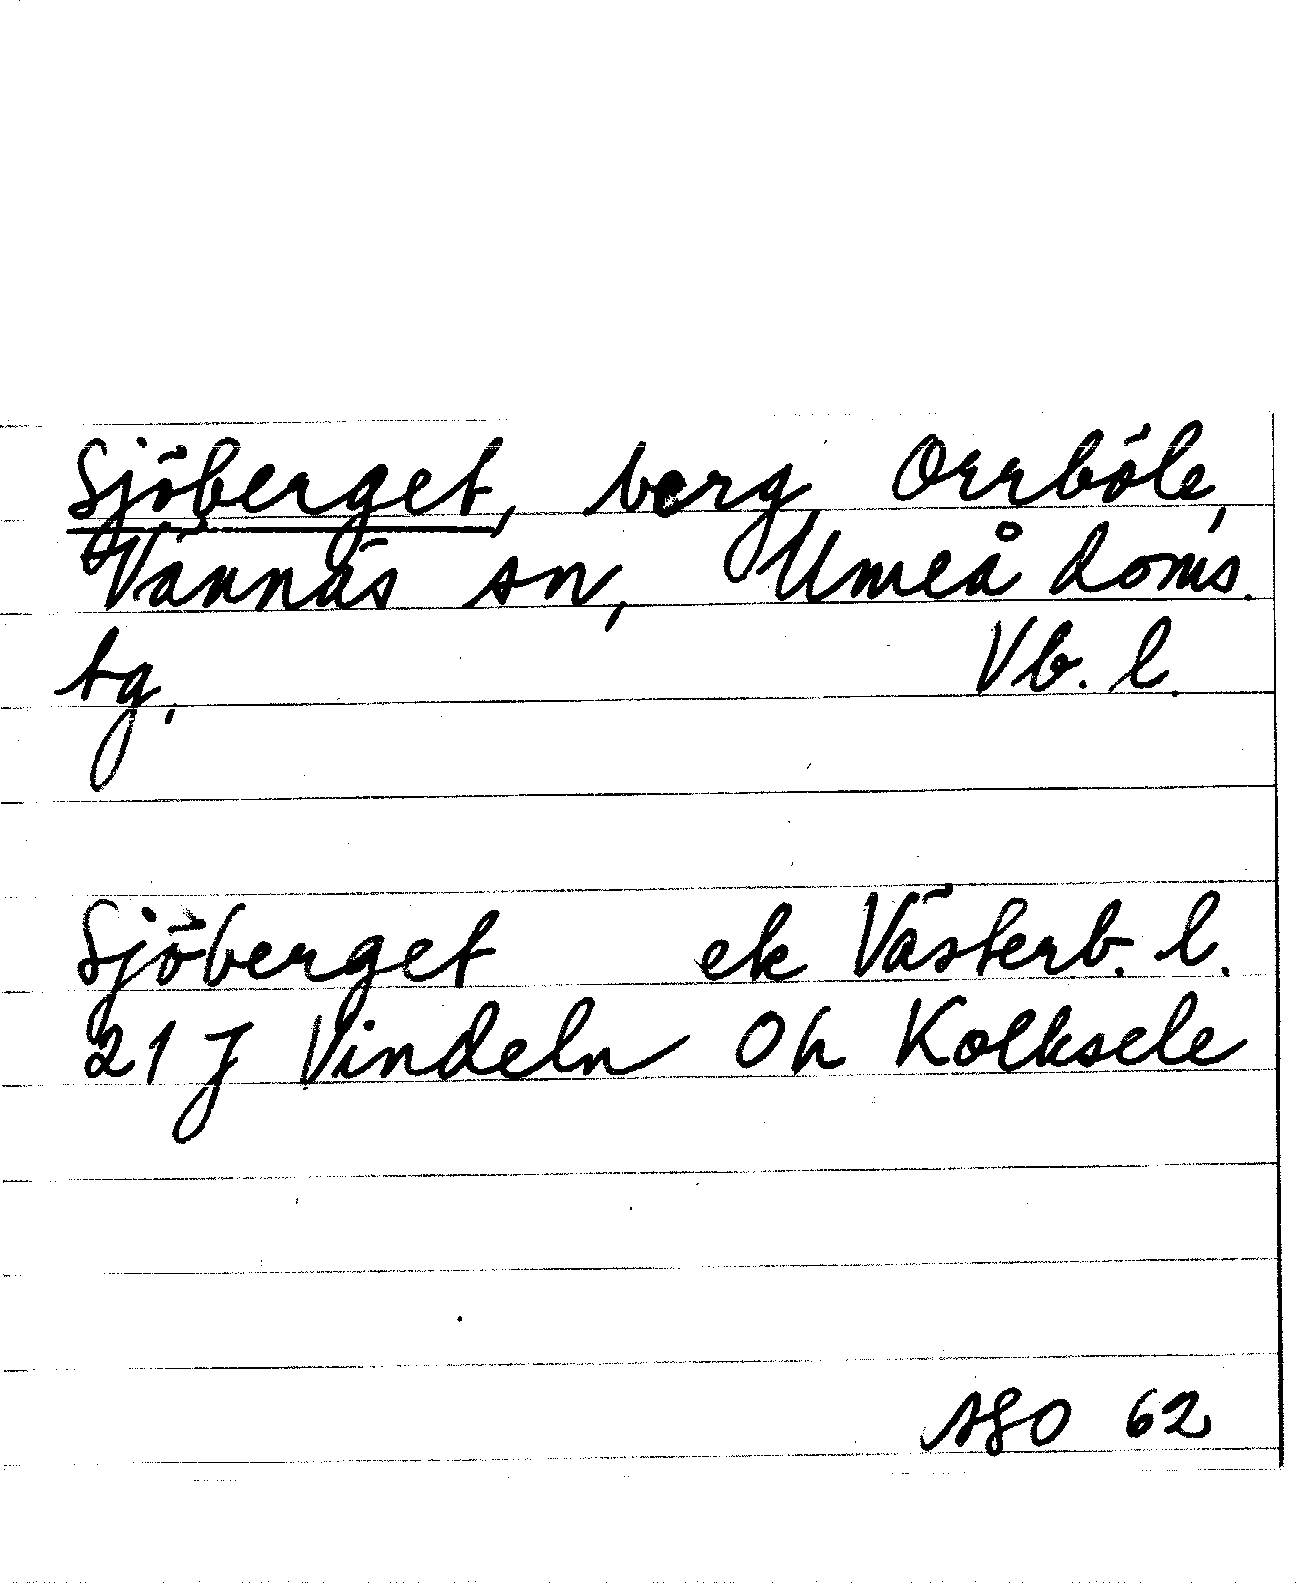 Sjöberget, berg, Orrböle,
Vännäs sn, Umeå doms.
tg. Vb. l.
Sjöberget ek Västerb. l.
21 J Vindeln Oh Kolksele
62